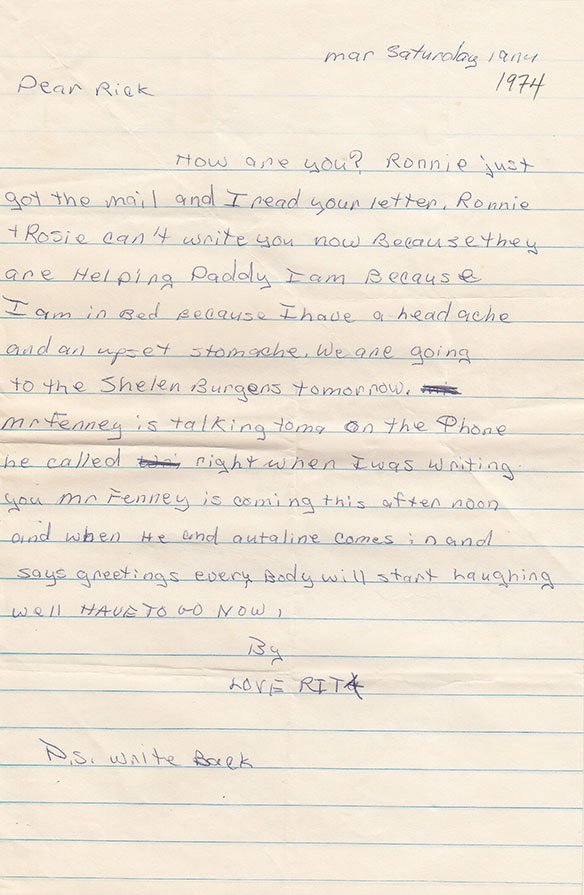 mar Saturday 1974
1974
Dear Rick
How are you? Ronnie just
got the mail and I read your letter. Ronnie
+ Rosie can't write you now Because they
are Helping Daddy I am Because
I am in Bed Because I have a head ache
and an upset stomache. We are going
to the Shelen Burgens tomorrow.
mr Fenney is talking to ma on the Phone
he called right when I was writing.
you mr Fenney is coming this after noon
and when He and autaline comes in and
says greetings every Body will start haughing
well HAVE TO GO NOW,
By
LOVE RITA
P.S. write Back